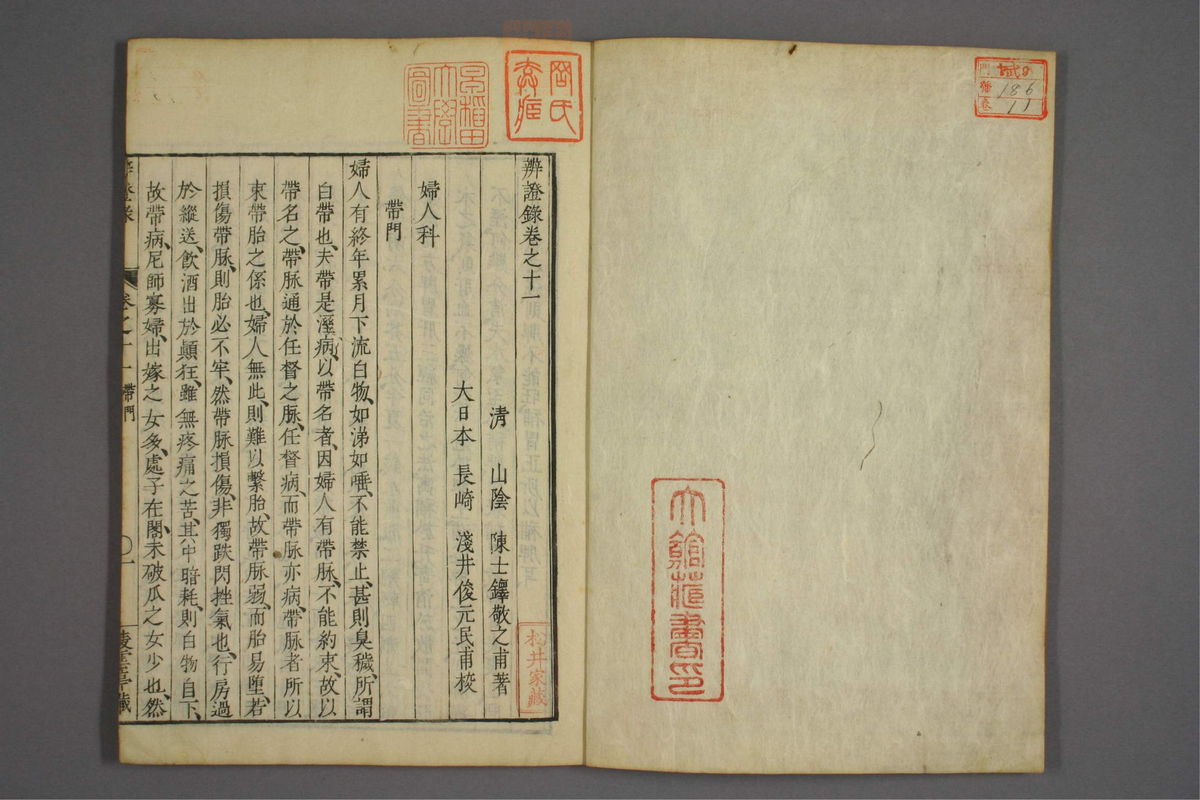 186
11
辨證錄卷之十一
清 山陰 陳士鐸敬之甫著
大日本 長崎 淺井俊元民甫校
婦人科
帶門
婦人有終年累月下流白物、如涕如唾、不能禁止、甚則臭穢、所謂
白帶也、夫帶是溼病、以帶名者、因婦人有帶脉、不能約束、故以
帶名之、帶脉通於任督之脉、任督病、而帶脉亦病、帶脉者所以
束帶胎之係也、婦人無此、則難以繫胎、故帶脉弱、而胎易墮、若
損傷帶脉、則胎必不牢、然帶脉損傷、非獨跌閃挫氣也、行房過
於縱送、飲酒出於顛狂、雖無疼痛之苦、其中暗耗、則白物自下、
故帶病、尼師寡婦、出嫁之女多、處子在閣、未破瓜之女少也、然
卷之十一 帶門
松井家藏
早稲田大學圖書